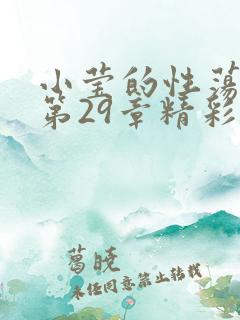 小莹的性荡
第29章精彩
葛晓
未经同意禁止转载